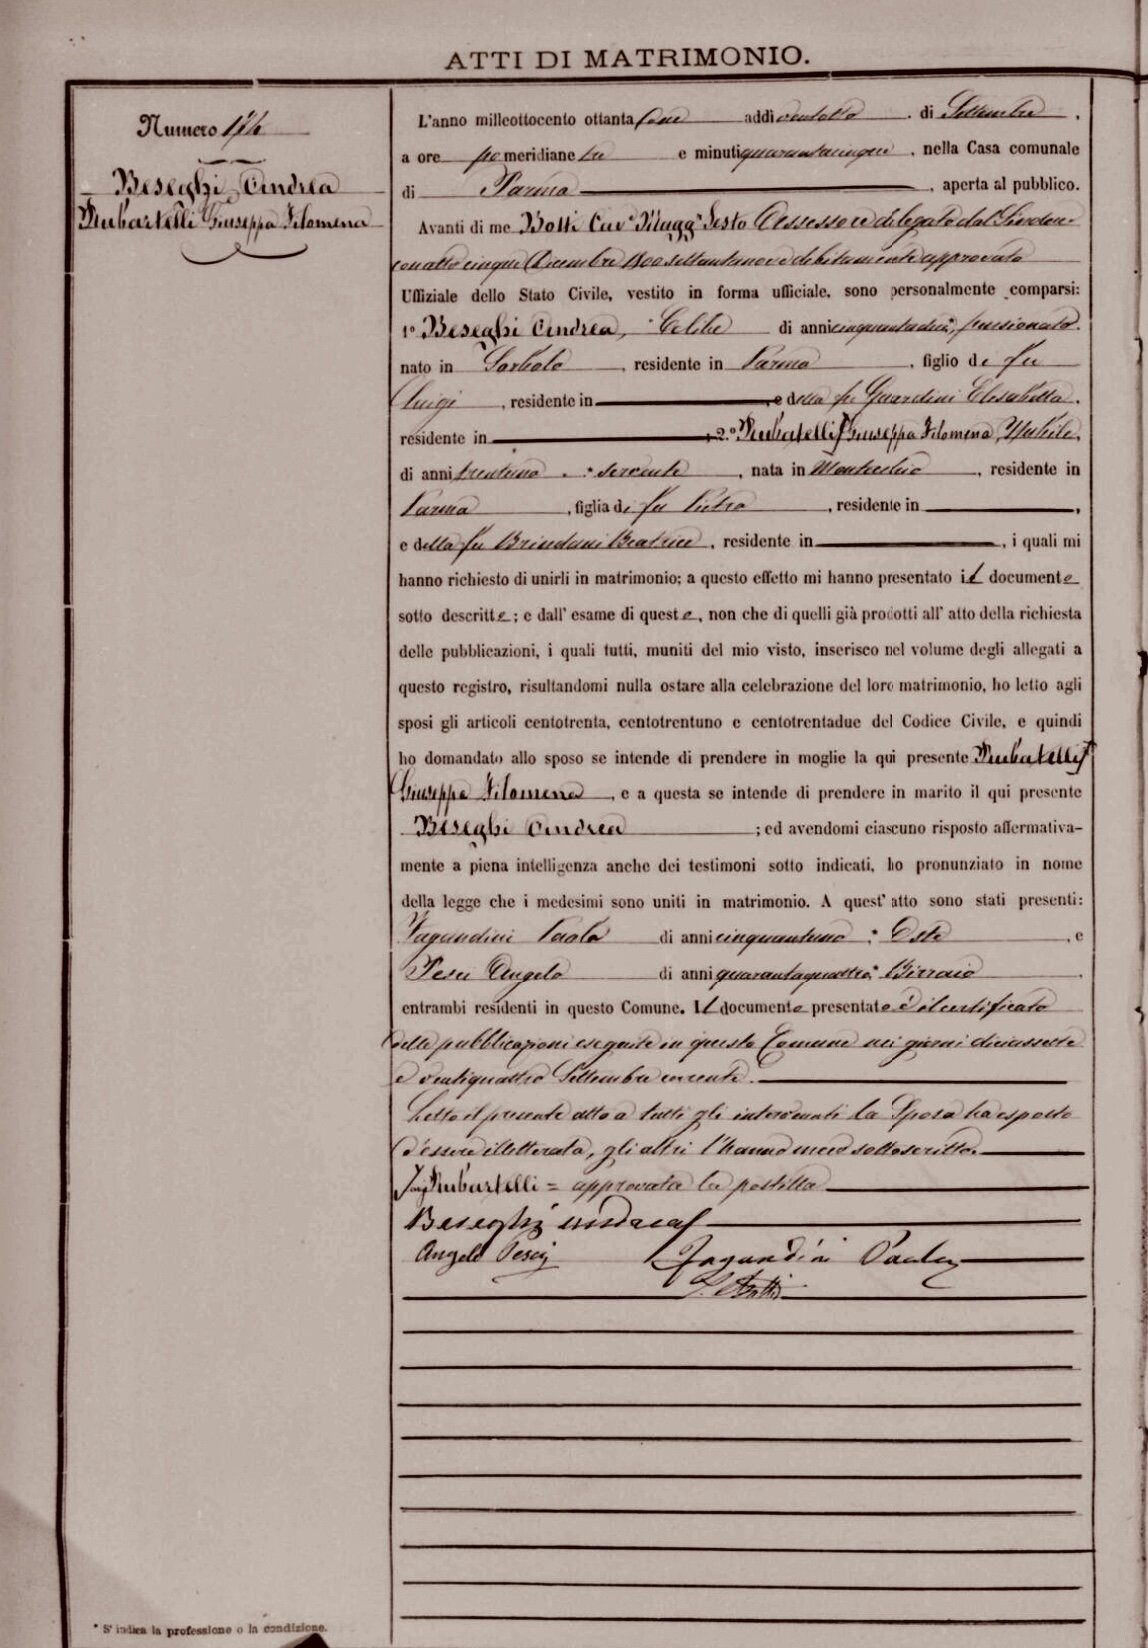 ATTI DI MATRIMONIO.
Numero 174
Beseghi Andrea
Rubartelli Giuseppa Filomena
L'anno milleottocento ottanta addì ventotto di Settembre,
a ore pomeridiane tre e minuti quarantacinque, nella Casa comunale
di Parma, aperta al pubblico.
Avanti di me Botti Cav. Magg. Sesto Assessore delegato dal Sindaco
con atto cinque Dicembre 1800settantanove debitamente approvato
Uffiziale dello Stato Civile, vestito in forma ufficiale, sono personalmente comparsi:
1º Beseghi Andrea, Celibe di anni, pensionato
nato in Sorbolo, residente in Parma, figlio di fu
Luigi, residente in e della fu Guardini Elisabetta,
residente in ; 2.º Rubatelli Giuseppa Filomena, Nubile,
di anni trentuno * servente, nata in Montecchio, residente in
Parma, figlia di fu Pietro, residente in ,
e della fu Brindani Beatrice, residente in , i quali mi
hanno richiesto di unirli in matrimonio; a questo effetto mi hanno presentato il documento
sotto descritto; e dall' esame di questo, non che di quelli già prodotti all' atto della richiesta
delle pubblicazioni, i quali tutti, muniti del mio visto, inserisco nel volume degli allegati a
questo registro, risultandomi nulla ostare alla celebrazione del loro matrimonio, ho letto agli
sposi gli articoli centotrenta, centotrentuno e centotrentadue del Codice Civile, e quindi
ho domandato allo sposo se intende di prendere in moglie la qui presente Rubatelli
Giuseppa Filomena, e a questa se intende di prendere in marito il qui presente
Beseghi Andrea ; ed avendomi ciascuno risposto affermativa-
mente a piena intelligenza anche dei testimoni sotto indicati, ho pronunziato in nome
della legge che i medesimi sono uniti in matrimonio. A quest' atto sono stati presenti:
Fagandini Paolo di anni cinquantuno, * Oste, e
Pesci Angelo di anni quarantaquattro * Birraio
entrambi residenti in questo Comune. Il documento presentato è il certificato
delle pubblicazioni eseguite in questo Comune nei giorni diciassette
e ventiquattro Settembre corrente.
Letto il presente atto a tutti gli intervenuti la Sposa ha esposto
d'essere illetterata, gli altri l'hanno meco sottoscritto.
Rubartelli = approvata la postilla
Beseghi Andrea
Angelo Pesci Fagandini Paolo
S. Botti
* S' indica la professione o la condizione.